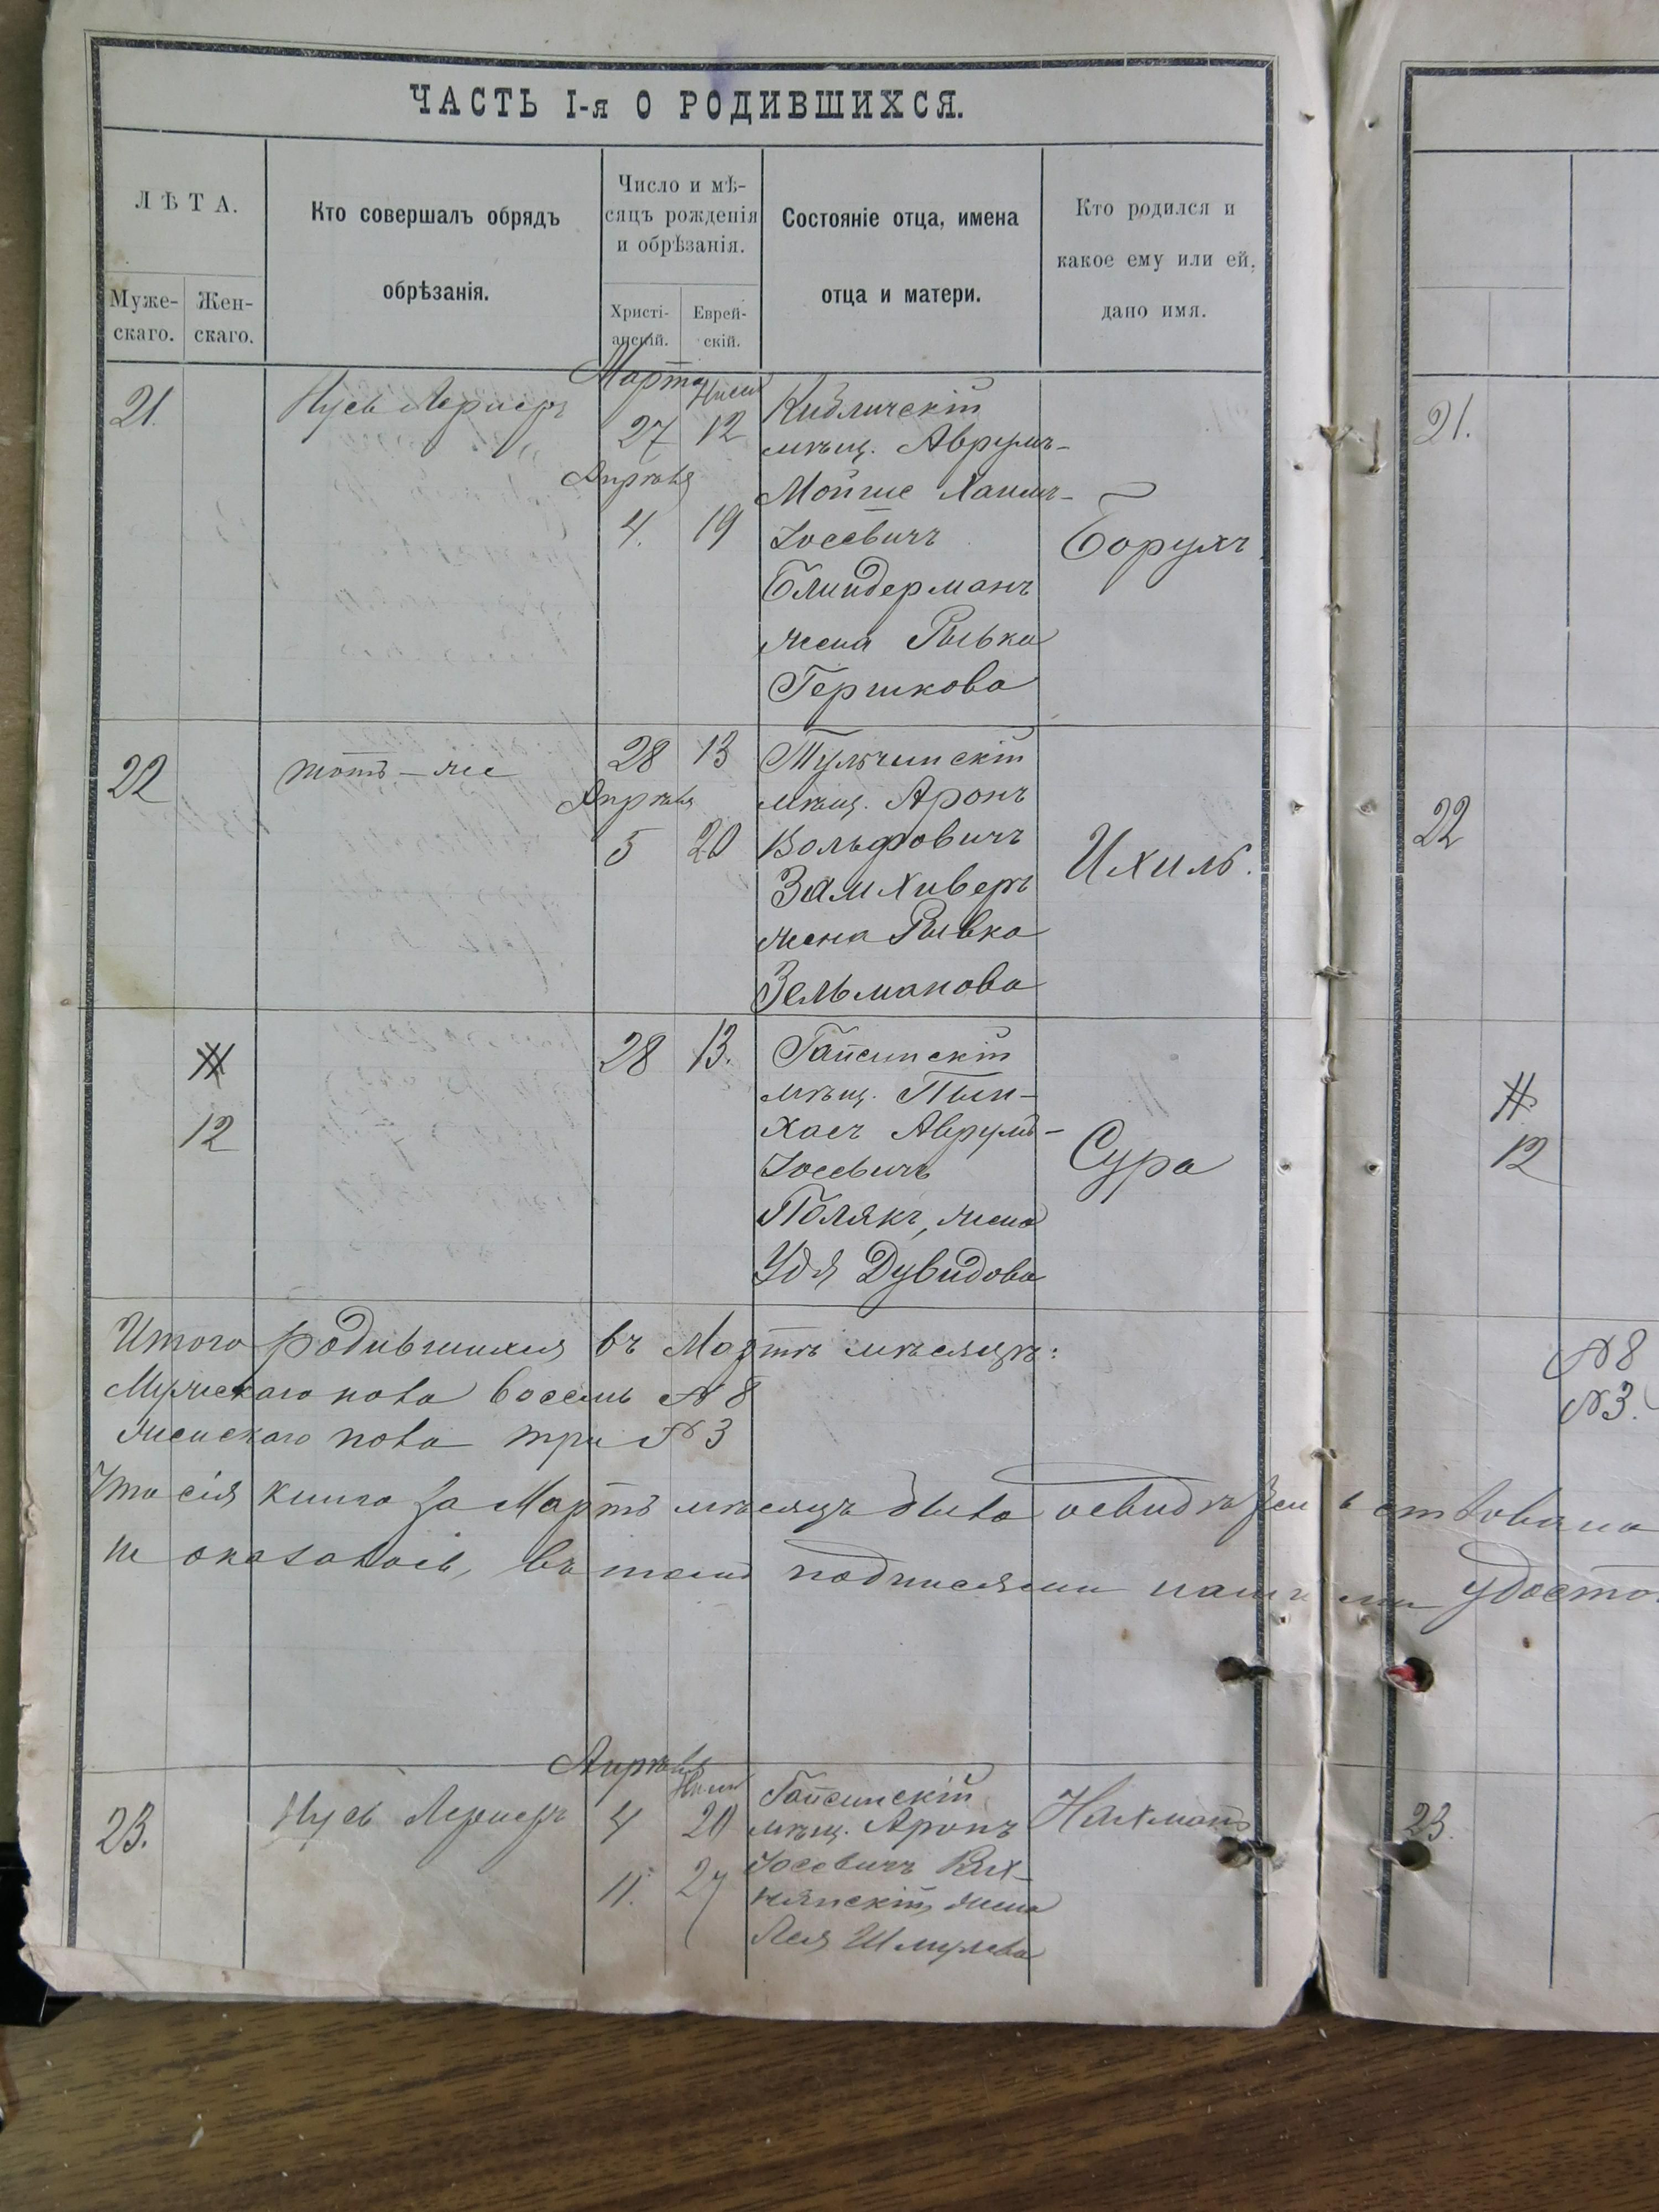 ЧАСТЬ I-я О РОДИВШИХСЯ.
ЛѢТА.
Муже-
скаго.
Жен-
скаго.
Кто совершалъ обрядъ
обрѣзанія.
Число и мѣ-
сяцъ рожденія
и обрѣзанія.
Христі-
анскій.
Еврей-
скій.
Состояніе отца, имена
отца и матери.
Кто родился и
какое ему или ей,
дано имя.
21.
Нусь Лернеръ
Марта
27
Нисна
12
Апрѣля
4.
19
Кибличскій
мѣщ. Аврумъ-
Мойше Хаимъ-
Іосевичъ
Блиндерманъ
жена Рывка
Гершкова
Борухъ
21.
22
тотъ-же
28
13
Апрѣля
5
20
Тульчинскій
мѣщ. Аронъ
Вольфовичъ
Замхиверъ
жена Рывка
Зельманова
Ихиль.
22
12
28
13.
Гайсинскій
мѣщ. Пын-
хасъ Аврумъ-
Іосевичъ
Полякъ, жена
Удя Дувидова
Сура
12
Итого родившихся въ Мартѣ мѣсяцѣ:
Мужскаго пола восемь № 8
№ 8
Женскаго пола три № 3
№ 3.
Что сія книга за Мартъ мѣсяцъ была освидѣтельствована
не оказалось, въ томъ подписями нашими удосто
23.
Нусь Лернеръ
Апрѣля
4
20
11.
27
Гайсинскій
мѣщ. Аронъ
Іосевичъ Вих-
нянскій, жена
Лея Шмулева
Нахманъ
23.